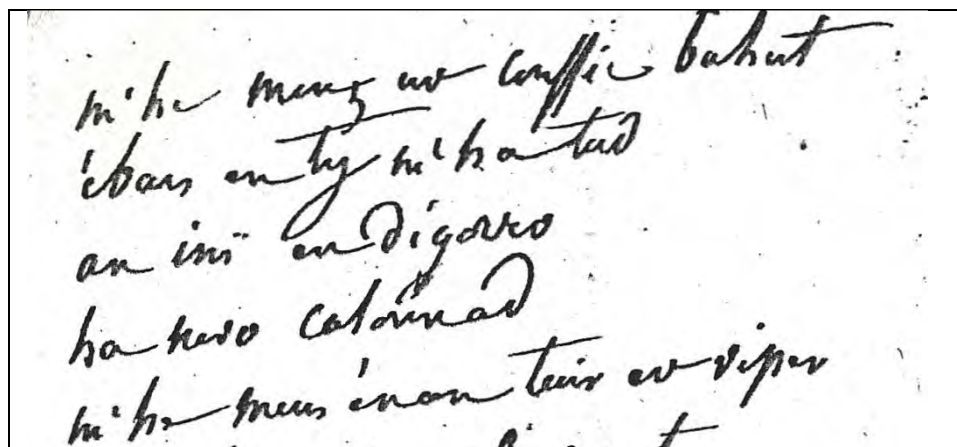 m'he meus ur couffic bahut
ébars en ty m'ha tad
an ini en digorro
ha nevo calonnad
m'he meus énan teir er viper